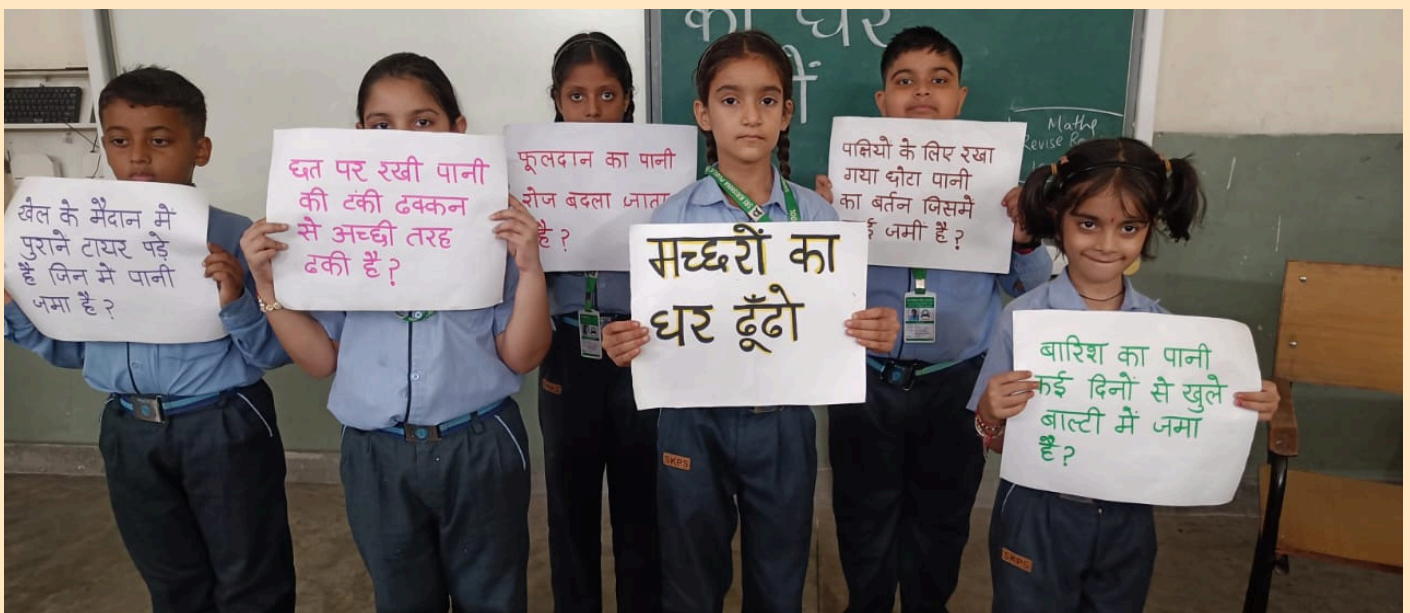 का घर
Maths
Revise
खेल के मैदान में
पुराने टायर पड़े
हैं जिन में पानी
जमा है?
छत पर रखी पानी
की टंकी ढक्कन
से अच्छी तरह
ढकी है?
फूलदान का पानी
रोज बदला जाता
है?
मच्छरों का
घर ढूँढो
पक्षियो के लिए रखा
गया छोटा पानी
का बर्तन जिसमें
जमी है?
बारिश का पानी
कई दिनों से खुले
बाल्टी में जमा
है?
SKPS
SKPS